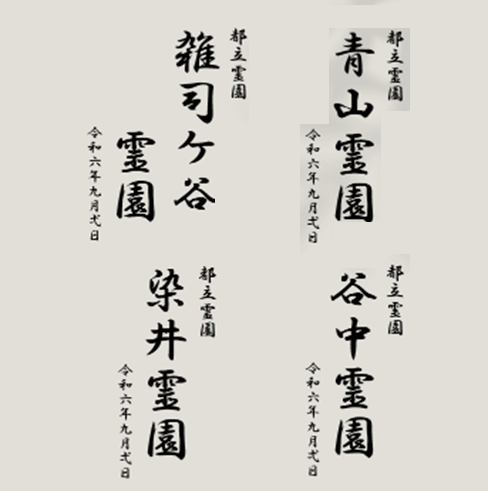 都立霊園
青山霊園
令和六年九月弍日
都立霊園
雑司ケ谷
霊園
令和六年九月弍日
都立霊園
谷中霊園
令和六年九月弍日
都立霊園
染井霊園
令和六年九月弍日